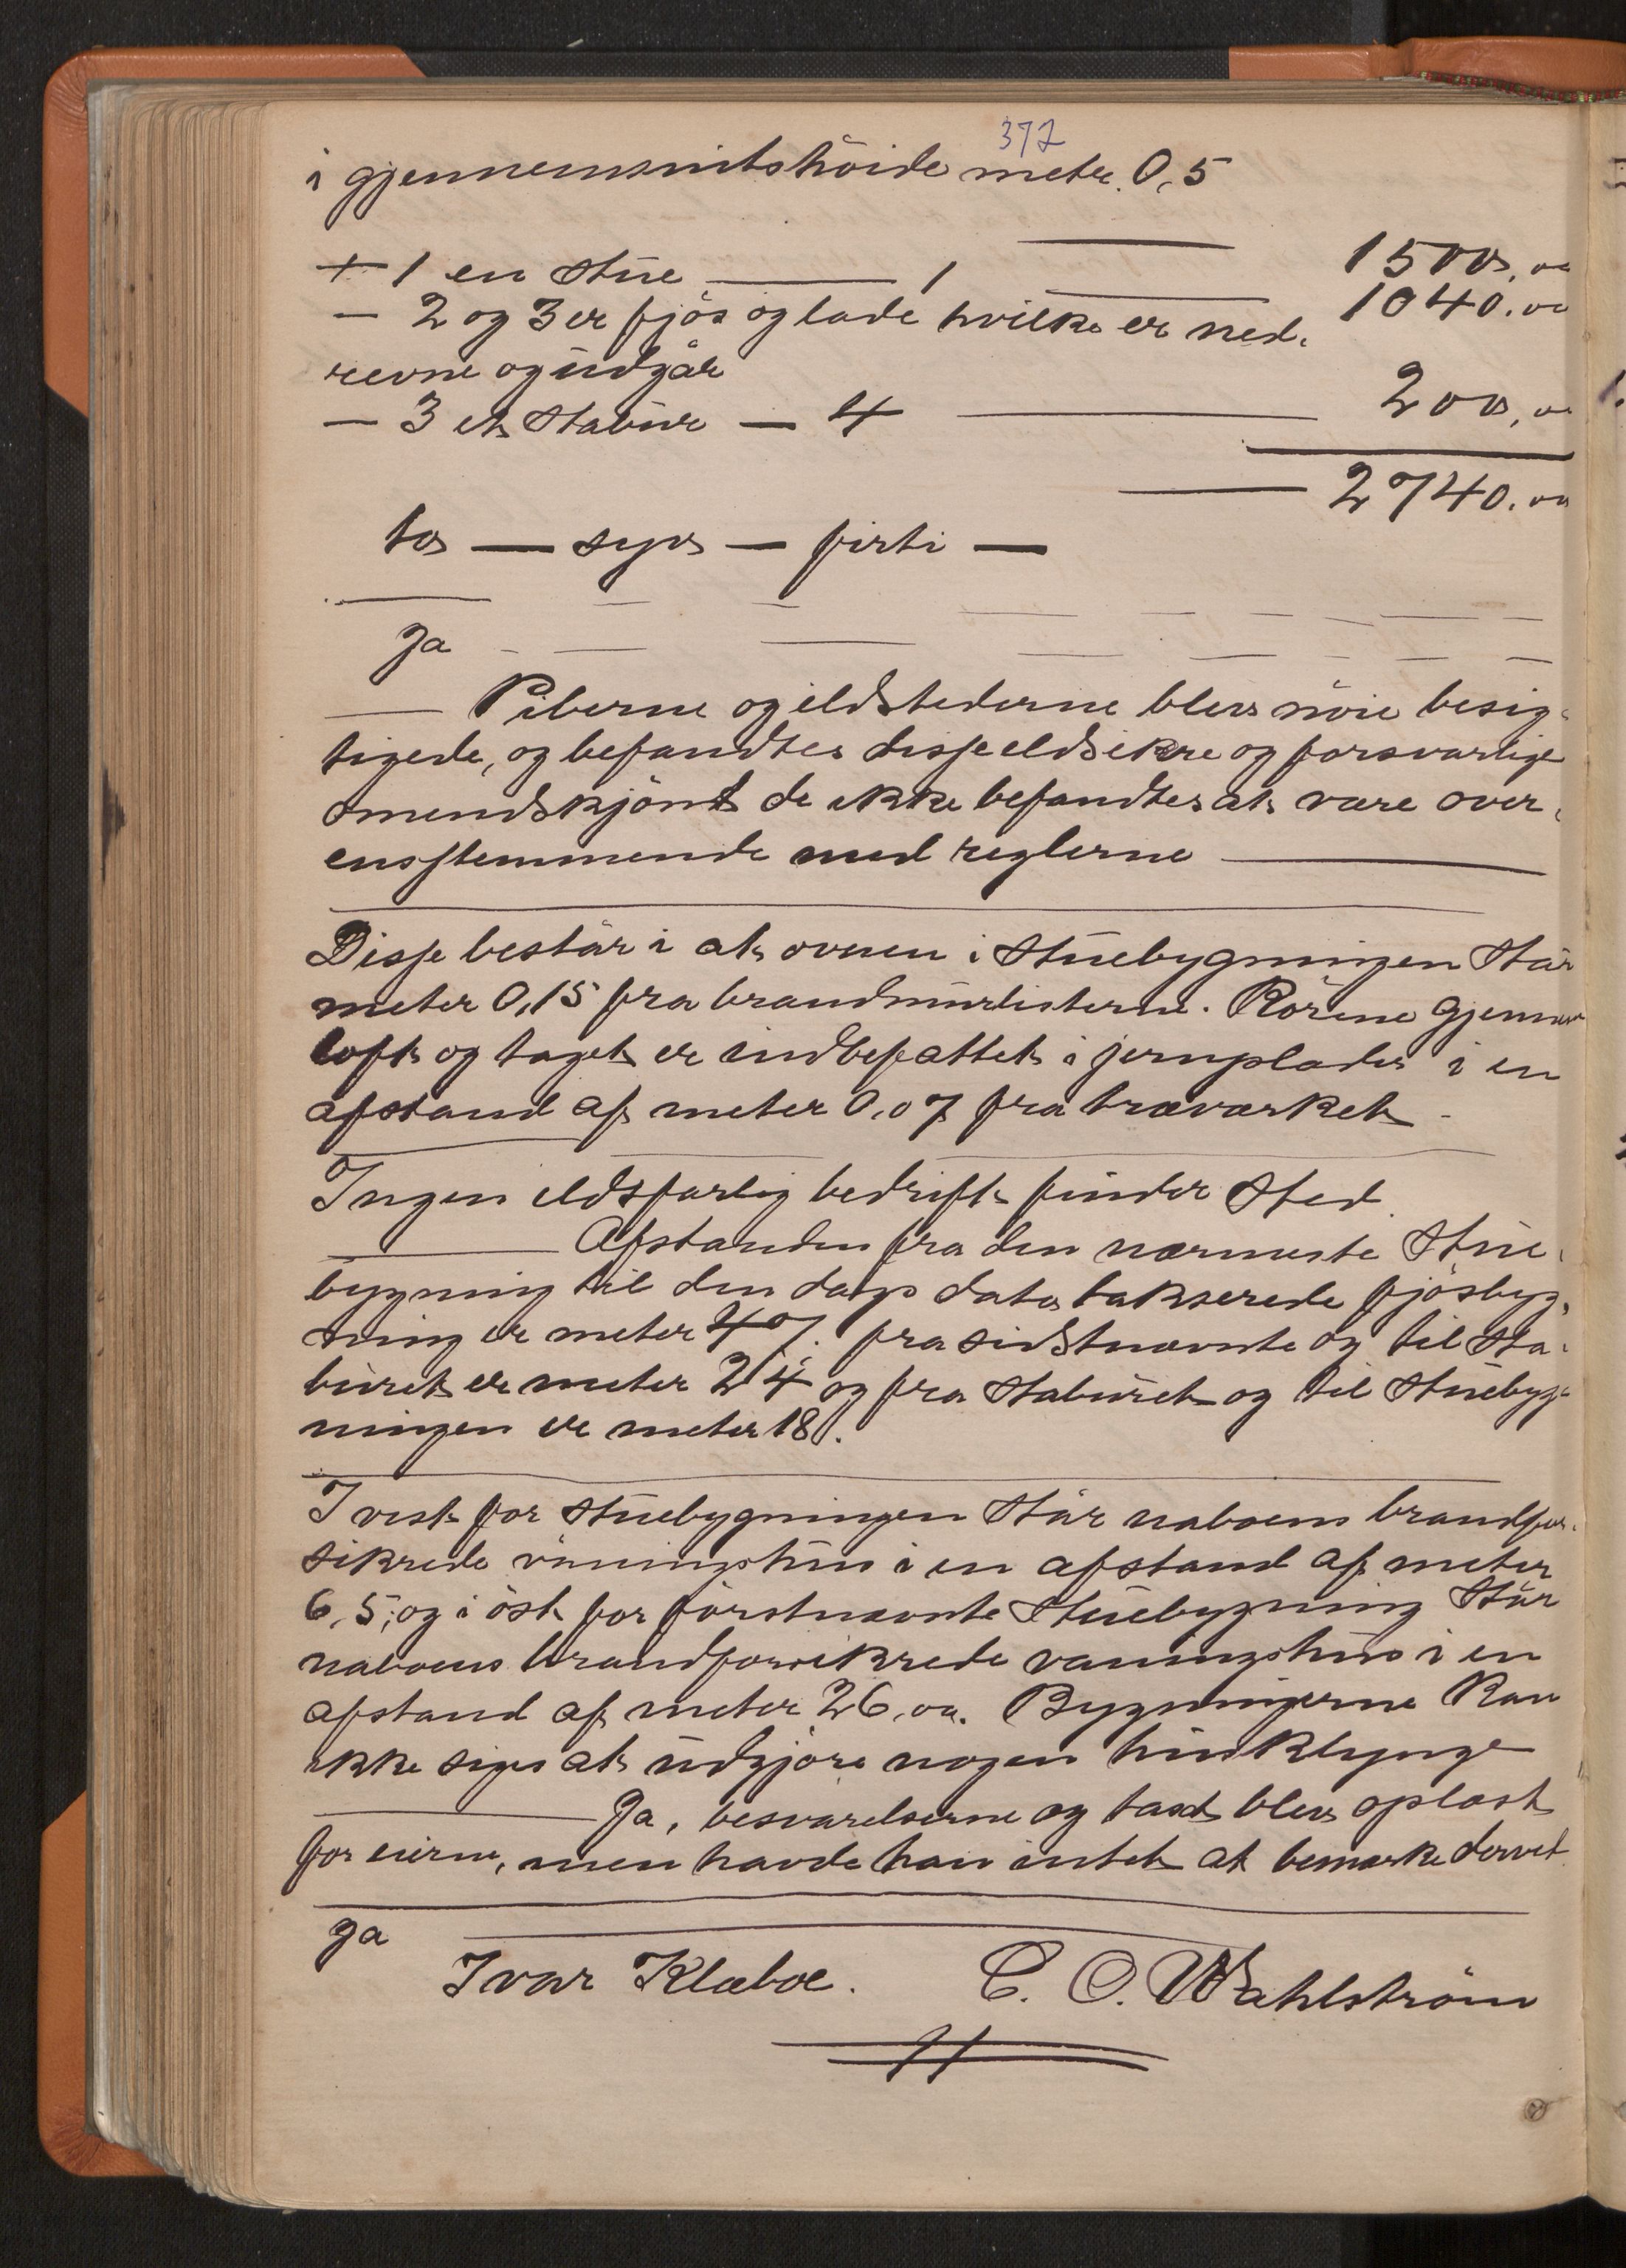 372
i gjennemsnitshöide meter. 0,5
+ 1 en stue — 1 — 1500,00
— 2 og 3 er fjös og lade hvilke er ned- 1040.00
revne og udgår
— 3 et stabur — 4 — 200,00
— 2740.00
to — syv — firti —
Ja
Piberne og ildstederne blev nöie besig-
tigede, og befandtes disse ildsikre og forsvarlige
omendskjönt de ikke befandtes at være over-
ensstemmende med reglerne
Disse består i at ovnen i stuebygningen står
meter 0,15 fra brandmurlisterne. Rörene gjennem
loft og taget er indbefattet i jernplader i en
afstand af meter 0,07 fra træværket
Ingen ildsfarlig bedrift finder sted
Afstanden fra den nærmeste stue-
bygning til den dags dato takserede fjösbyg-
ning er meter 47. fra sidstnævnte og til sta-
buret er meter 24 og fra staburet og til stuebyg-
ningen er meter 18.
I vest for stuebygningen står naboens brandfor-
sikrede våningshus i en afstand af meter
6,5; og i öst for förstnævnte stuebygning står
naboens brandforsikrede vaningshus i en
afstand af meter 26,00. Bygningerne kan
ikke siges at udgjöre nogen husklynge
Ja, besvarelserne og taxt blev oplæst
for eierne, men havde han intet at bemærke derved
Ja
Ivar Klæboe. C. O. Wahlström